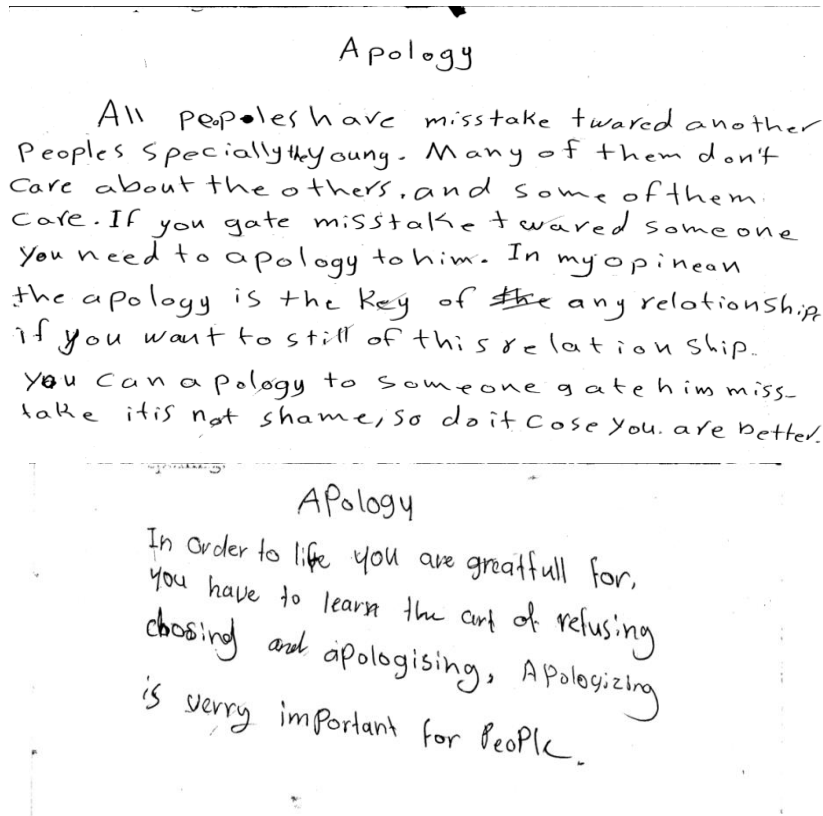 Apology
All peopoles have misstake twared another
Peoples specially the young. Many of them don't
Care about the others, and some of them
Care. If you gate misstake twared someone
You need to apology to him. In my opinean
the apology is the key of the any relationship
if you want to still of this relation ship.
You can apology to someone gate him miss-
take itis not shame, so do it cose you. are better.
APology
In order to life you are greatfull for,
You have to learn the art of refusing
choosing and apologising, APologizing
is verry important for PeoPle.